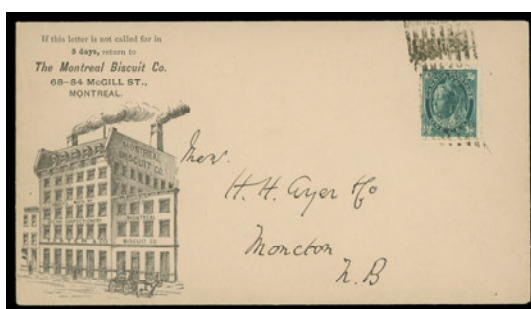 If this letter is not called for in
5 days, return to
The Montreal Biscuit Co.
68-84 McGILL ST.,
MONTREAL.
MONTREAL
BISCUIT CO.
MONTREAL
BISCUIT CO
H. H. Ayer & Co
Moncton
N. B